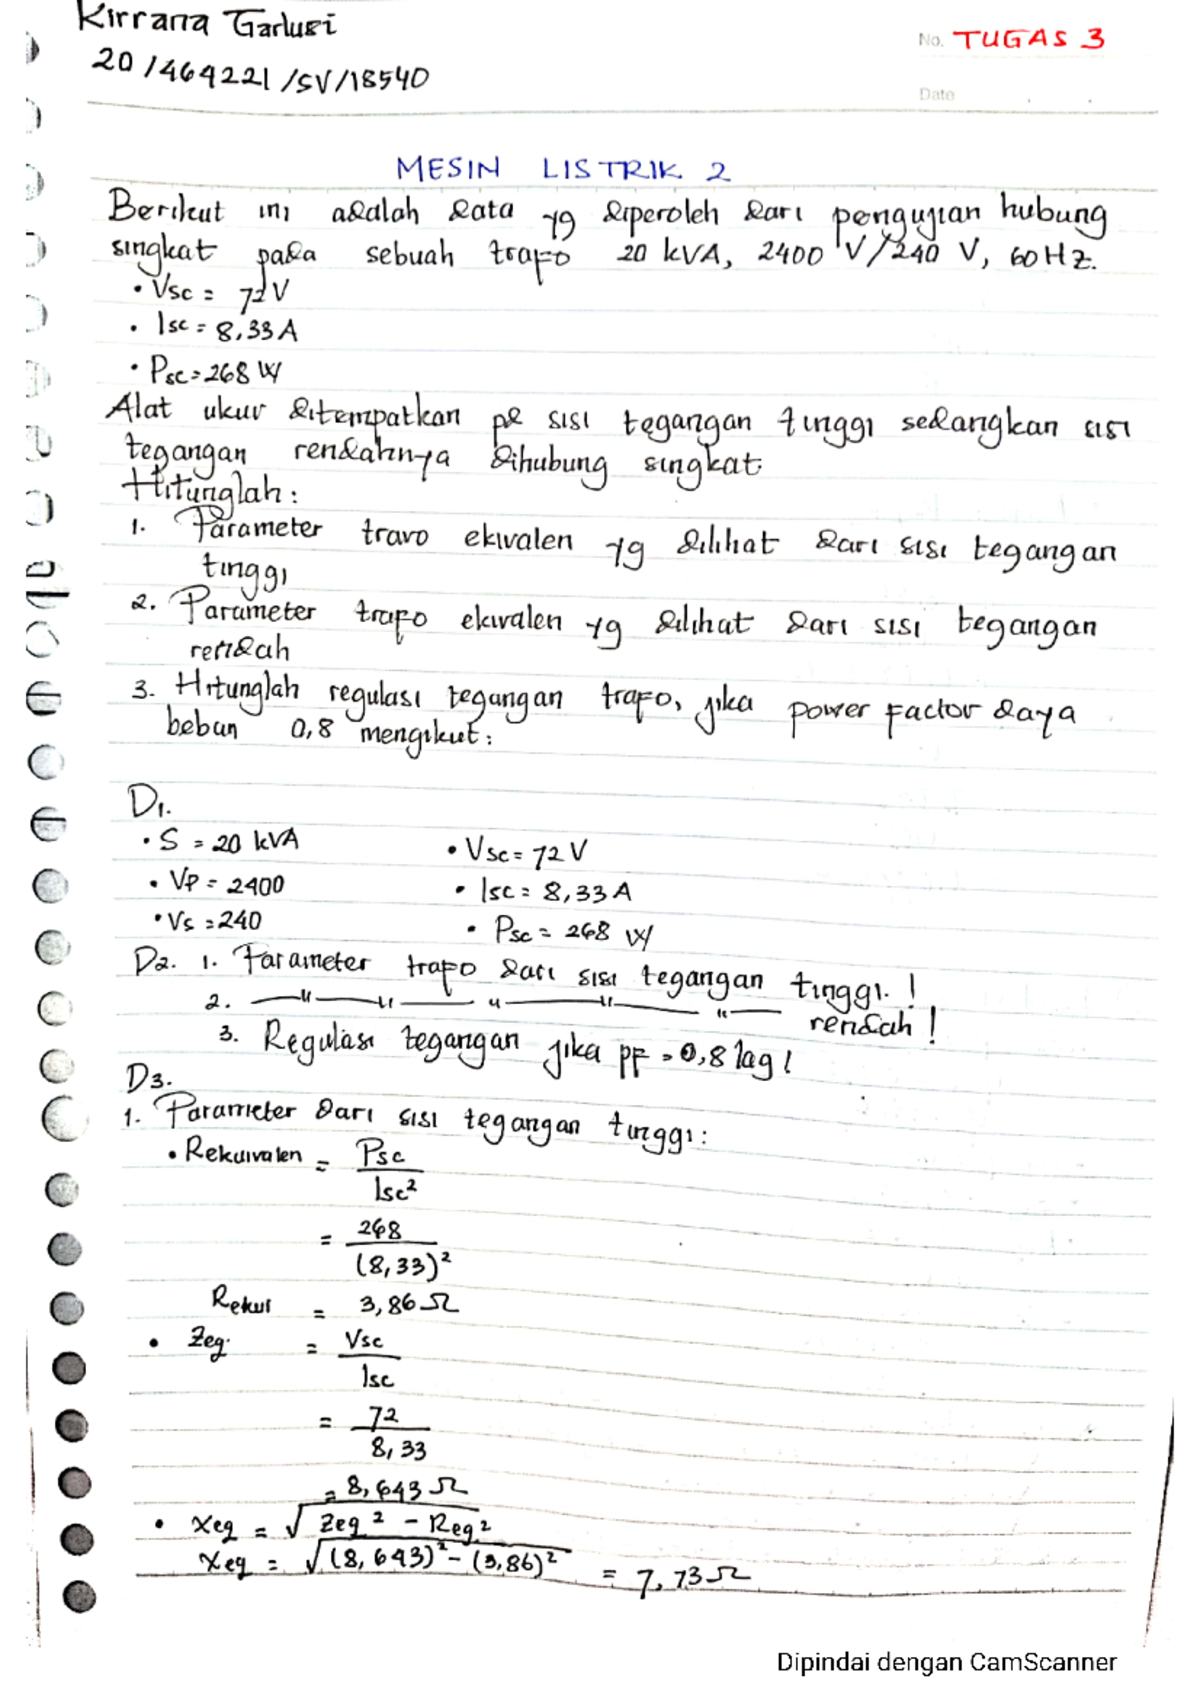 Kirrana Garlusi
20/464221/SV/18540
No. TUGAS 3
Date
MESIN LISTRIK 2
Berikut ini adalah data yg diperoleh dari pengujian hubung
singkat pada sebuah trafo 20 kVA, 2400 V/240 V, 60 Hz.
• Vsc = 72 V
• Isc = 8,33 A
• Psc = 268 W
Alat ukur ditempatkan pd sisi tegangan tinggi sedangkan sisi
tegangan rendahnya dihubung singkat
Hitunglah :
1. Parameter travo ekivalen yg dilihat dari sisi tegangan
tinggi
2. Parameter trafo ekivalen yg dilihat dari sisi tegangan
rendah
3. Hitunglah regulasi tegangan trafo, jika power factor daya
beban 0,8 mengikut :
D1.
• S = 20 kVA
• Vsc = 72 V
• Vp = 2400
• Isc = 8,33 A
• Vs = 240
• Psc = 268 W
D2. 1. Parameter trafo dari sisi tegangan tinggi. !
2. —"— —"— —"— —"— —"— rendah !
3. Regulasi tegangan jika pf = 0,8 lag !
D3.
1. Parameter dari sisi tegangan tinggi :
• Rekuivalen = Psc
Isc²
= 268
(8,33)²
Rekui = 3,86 Ω
• Zeq. = Vsc
Isc
= 72
8,33
= 8,643 Ω
• Xeq = √ Zeq² - Req²
Xeq = √ (8,643)² - (3,86)² = 7,73 Ω
Dipindai dengan CamScanner